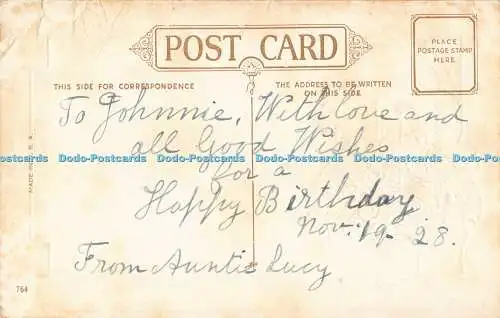 POST CARD
PLACE
POSTAGE STAMP
HERE
THIS SIDE FOR CORRESPONDENCE
THE ADDRESS TO BE WRITTEN
ON THIS SIDE
To Johnnie, With love and
all Good Wishes
Dodo-Postcards Dodo-Postcards Dodo-Postcards Dodo-Postcards Dodo-Postcards Dodo-Postcards
for a
Happy Birthday
Nov. 19 - 28.
From Auntie Lucy
764